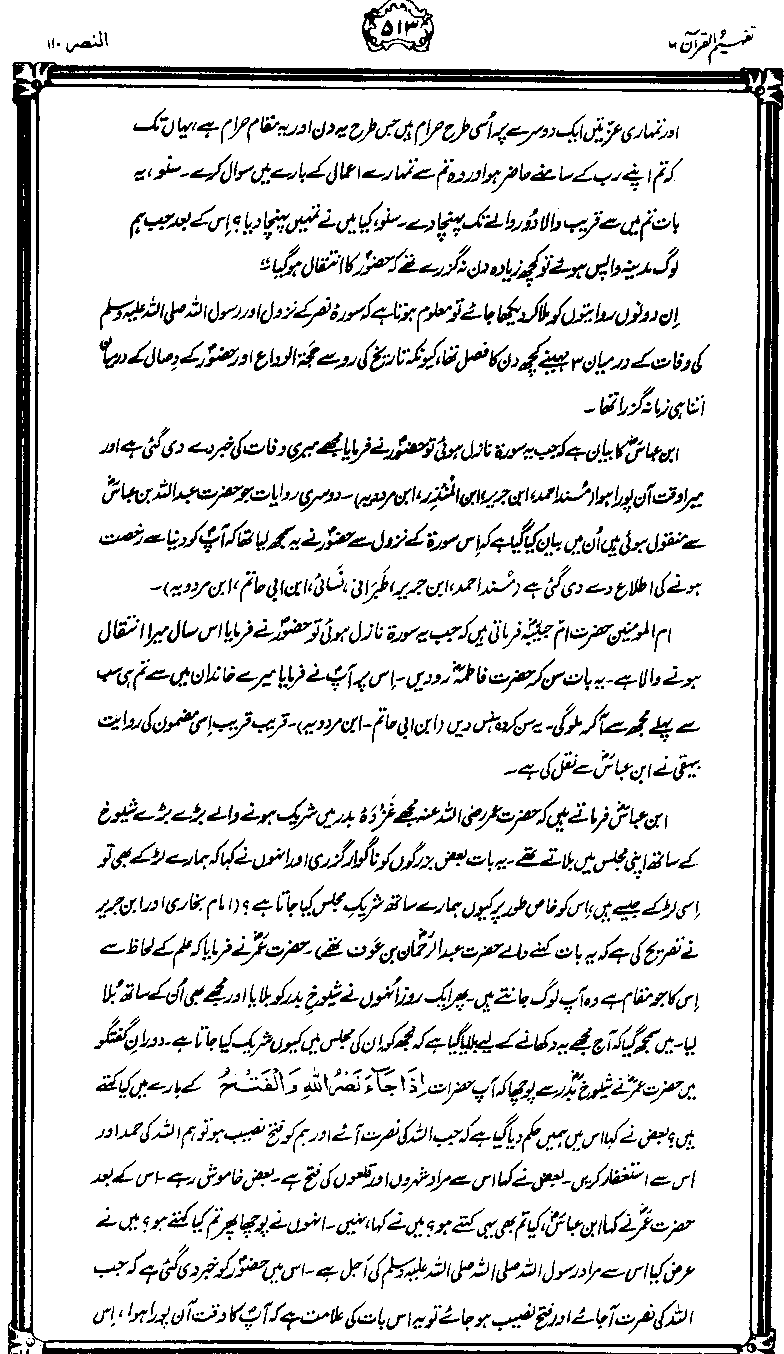 تفہیم القرآن ۶
۵۱۳
النصر ۱۱۰
اور تمہاری عزتیں ایک دوسرے پر اُسی طرح حرام ہیں جس طرح یہ دن اور یہ مقام حرام ہے، یہاں تک
کہ تم اپنے رب کے سامنے حاضر ہو اور وہ تم سے تمہارے اعمال کے بارے میں سوال کرے۔ سنو، یہ
بات تم میں سے قریب والا دُور والے تک پہنچا دے۔ سنو، کیا میں نے تمہیں پہنچا دیا؟ اِس کے بعد جب ہم
لوگ مدینہ واپس ہوئے تو کچھ زیادہ دن نہ گزرے تھے کہ حضورؐ کا انتقال ہو گیا"
اِن دونوں روایتوں کو ملا کر دیکھا جائے تو معلوم ہوتا ہے کہ سورۂ نصر کے نزول اور رسول اللہ صلی اللہ علیہ وسلم
کی وفات کے درمیان ۳ مہینے کچھ دن کا فصل تھا، کیونکہ تاریخ کی رو سے حجۃ الوداع اور حضورؐ کے وصال کے درمیان
اتنا ہی زمانہ گزرا تھا۔
ابن عباسؓ کا بیان ہے کہ جب یہ سورۃ نازل ہوئی تو حضورؐ نے فرمایا مجھے میری وفات کی خبر دے دی گئی ہے اور
میرا وقت آن پورا ہوا (مُسند احمد، ابن جریر، ابن المُنذِر، ابن مردویہ)۔ دوسری روایات جو حضرت عبداللہ بن عباسؓ
سے منقول ہوئی ہیں اُن میں بیان کیا گیا ہے کہ اِس سورۃ کے نزول سے حضورؐ نے یہ سمجھ لیا تھا کہ آپؐ کو دنیا سے رخصت
ہونے کی اطلاع دے دی گئی ہے (مُسند احمد، ابن جریر، طَبَرانی، نَسائی، ابن ابی حاتم، ابن مردویہ)۔
ام المومنین حضرت امّ حبیبہؓ فرماتی ہیں کہ جب یہ سورۃ نازل ہوئی تو حضورؐ نے فرمایا اس سال میرا انتقال
ہونے والا ہے۔ یہ بات سن کر حضرت فاطمہؓ رو دیں۔ اِس پر آپؐ نے فرمایا میرے خاندان میں سے تم ہی سب
سے پہلے مجھ سے آکر ملو گی۔ یہ سن کر وہ ہنس دیں (ابن ابی حاتم۔ ابن مردویہ)۔ قریب قریب اِسی مضمون کی روایت
بیہقی نے ابن عباسؓ سے نقل کی ہے۔
ابن عباسؓ فرماتے ہیں کہ حضرت عمر رضی اللہ عنہ مجھے غَزْوَۂ بدر میں شریک ہونے والے بڑے بڑے شیوخ
کے ساتھ اپنی مجلس میں بلاتے تھے۔ یہ بات بعض بزرگوں کو ناگوار گزری اور انہوں نے کہا کہ ہمارے لڑکے بھی تو
اِسی لڑکے جیسے ہیں، اِس کو خاص طور پر کیوں ہمارے ساتھ شریکِ مجلس کیا جاتا ہے؟ (امام بخاری اور ابن جریر
نے تصریح کی ہے کہ یہ بات کہنے والے حضرت عبدالرحمٰنؓ بن عوف تھے)۔ حضرت عمرؓ نے فرمایا کہ علم کے لحاظ سے
اِس کا جو مقام ہے وہ آپ لوگ جانتے ہیں۔ پھر ایک روز اُنہوں نے شیوخِ بدر کو بلایا اور مجھے بھی اُن کے ساتھ بُلا
لیا۔ میں سمجھ گیا کہ آج مجھے یہ دکھانے کے لیے بلایا گیا ہے کہ مجھ کو ان کی مجلس میں کیوں شریک کیا جاتا ہے۔ دورانِ گفتگو
میں حضرت عمرؓ نے شیوخِ بدرؓ سے پوچھا کہ آپ حضرات اِذَا جَآءَ نَصْرُ اللہِ وَالْفَتْحُ کے بارے میں کیا کہتے
ہیں؟ بعض نے کہا اس میں ہمیں حکم دیا گیا ہے کہ جب اللہ کی نصرت آئے اور ہم کو فتح نصیب ہو تو ہم اللہ کی حمد اور
اس سے استغفار کریں۔ بعض نے کہا اس سے مراد شہروں اور قلعوں کی فتح ہے۔ بعض خاموش رہے۔ اس کے بعد
حضرت عمرؓ نے کہا ابن عباسؓ، کیا تم بھی یہی کہتے ہو؟ میں نے کہا، نہیں۔ انہوں نے پوچھا پھر تم کیا کہتے ہو؟ میں نے
عرض کیا اس سے مراد رسول اللہ صلی اللہ صلی اللہ علیہ وسلم کی اجل ہے۔ اس میں حضورؐ کو خبر دی گئی ہے کہ جب
اللہ کی نصرت آجائے اور فتح نصیب ہو جائے تو یہ اس بات کی علامت ہے کہ آپؐ کا وقت آن پورا ہوا، اِس